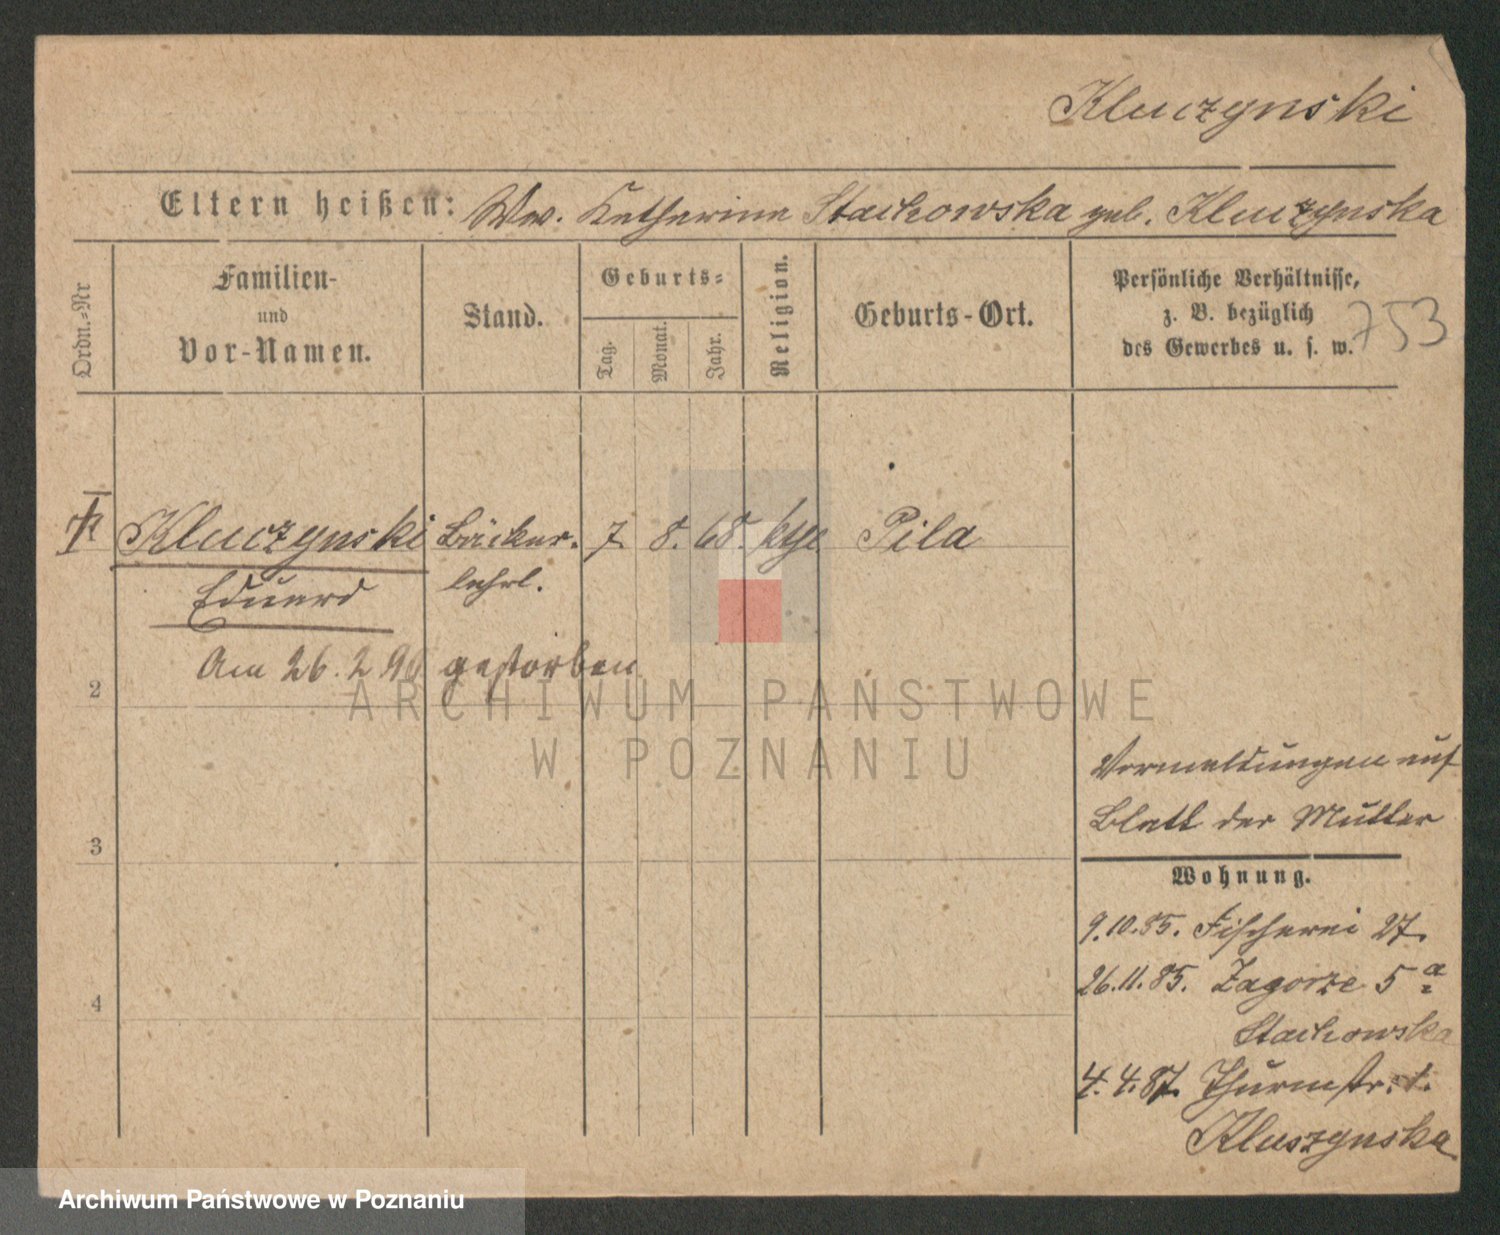 Kluczynski
Eltern heißen: Ww. Katharina Stachowska geb. Kluczynska
Ordn.-Nr
Familien-
und
Vor-Namen.
Stand.
Geburts-
Tag.
Monat.
Jahr.
Religion.
Geburts-Ort.
Persönliche Verhältnisse,
z. B. bezüglich
des Gewerbes u. s. w.
753
Kluczynski Bäcker- 7. 8. 68. kth Pila
Eduard lehrl.
Am 26. 2 90 gestorben
2
3
4
Vormeldungen auf
Blatt der Mutter
Wohnung.
9.10.85. Fischerei 27.
26.11.85. Zagorze 5 a
Stachowska
4.4.87. Thurmstr. 1.
Kluszynska
ARCHIWUM PAŃSTWOWE
W POZNANIU
Archiwum Państwowe w Poznaniu